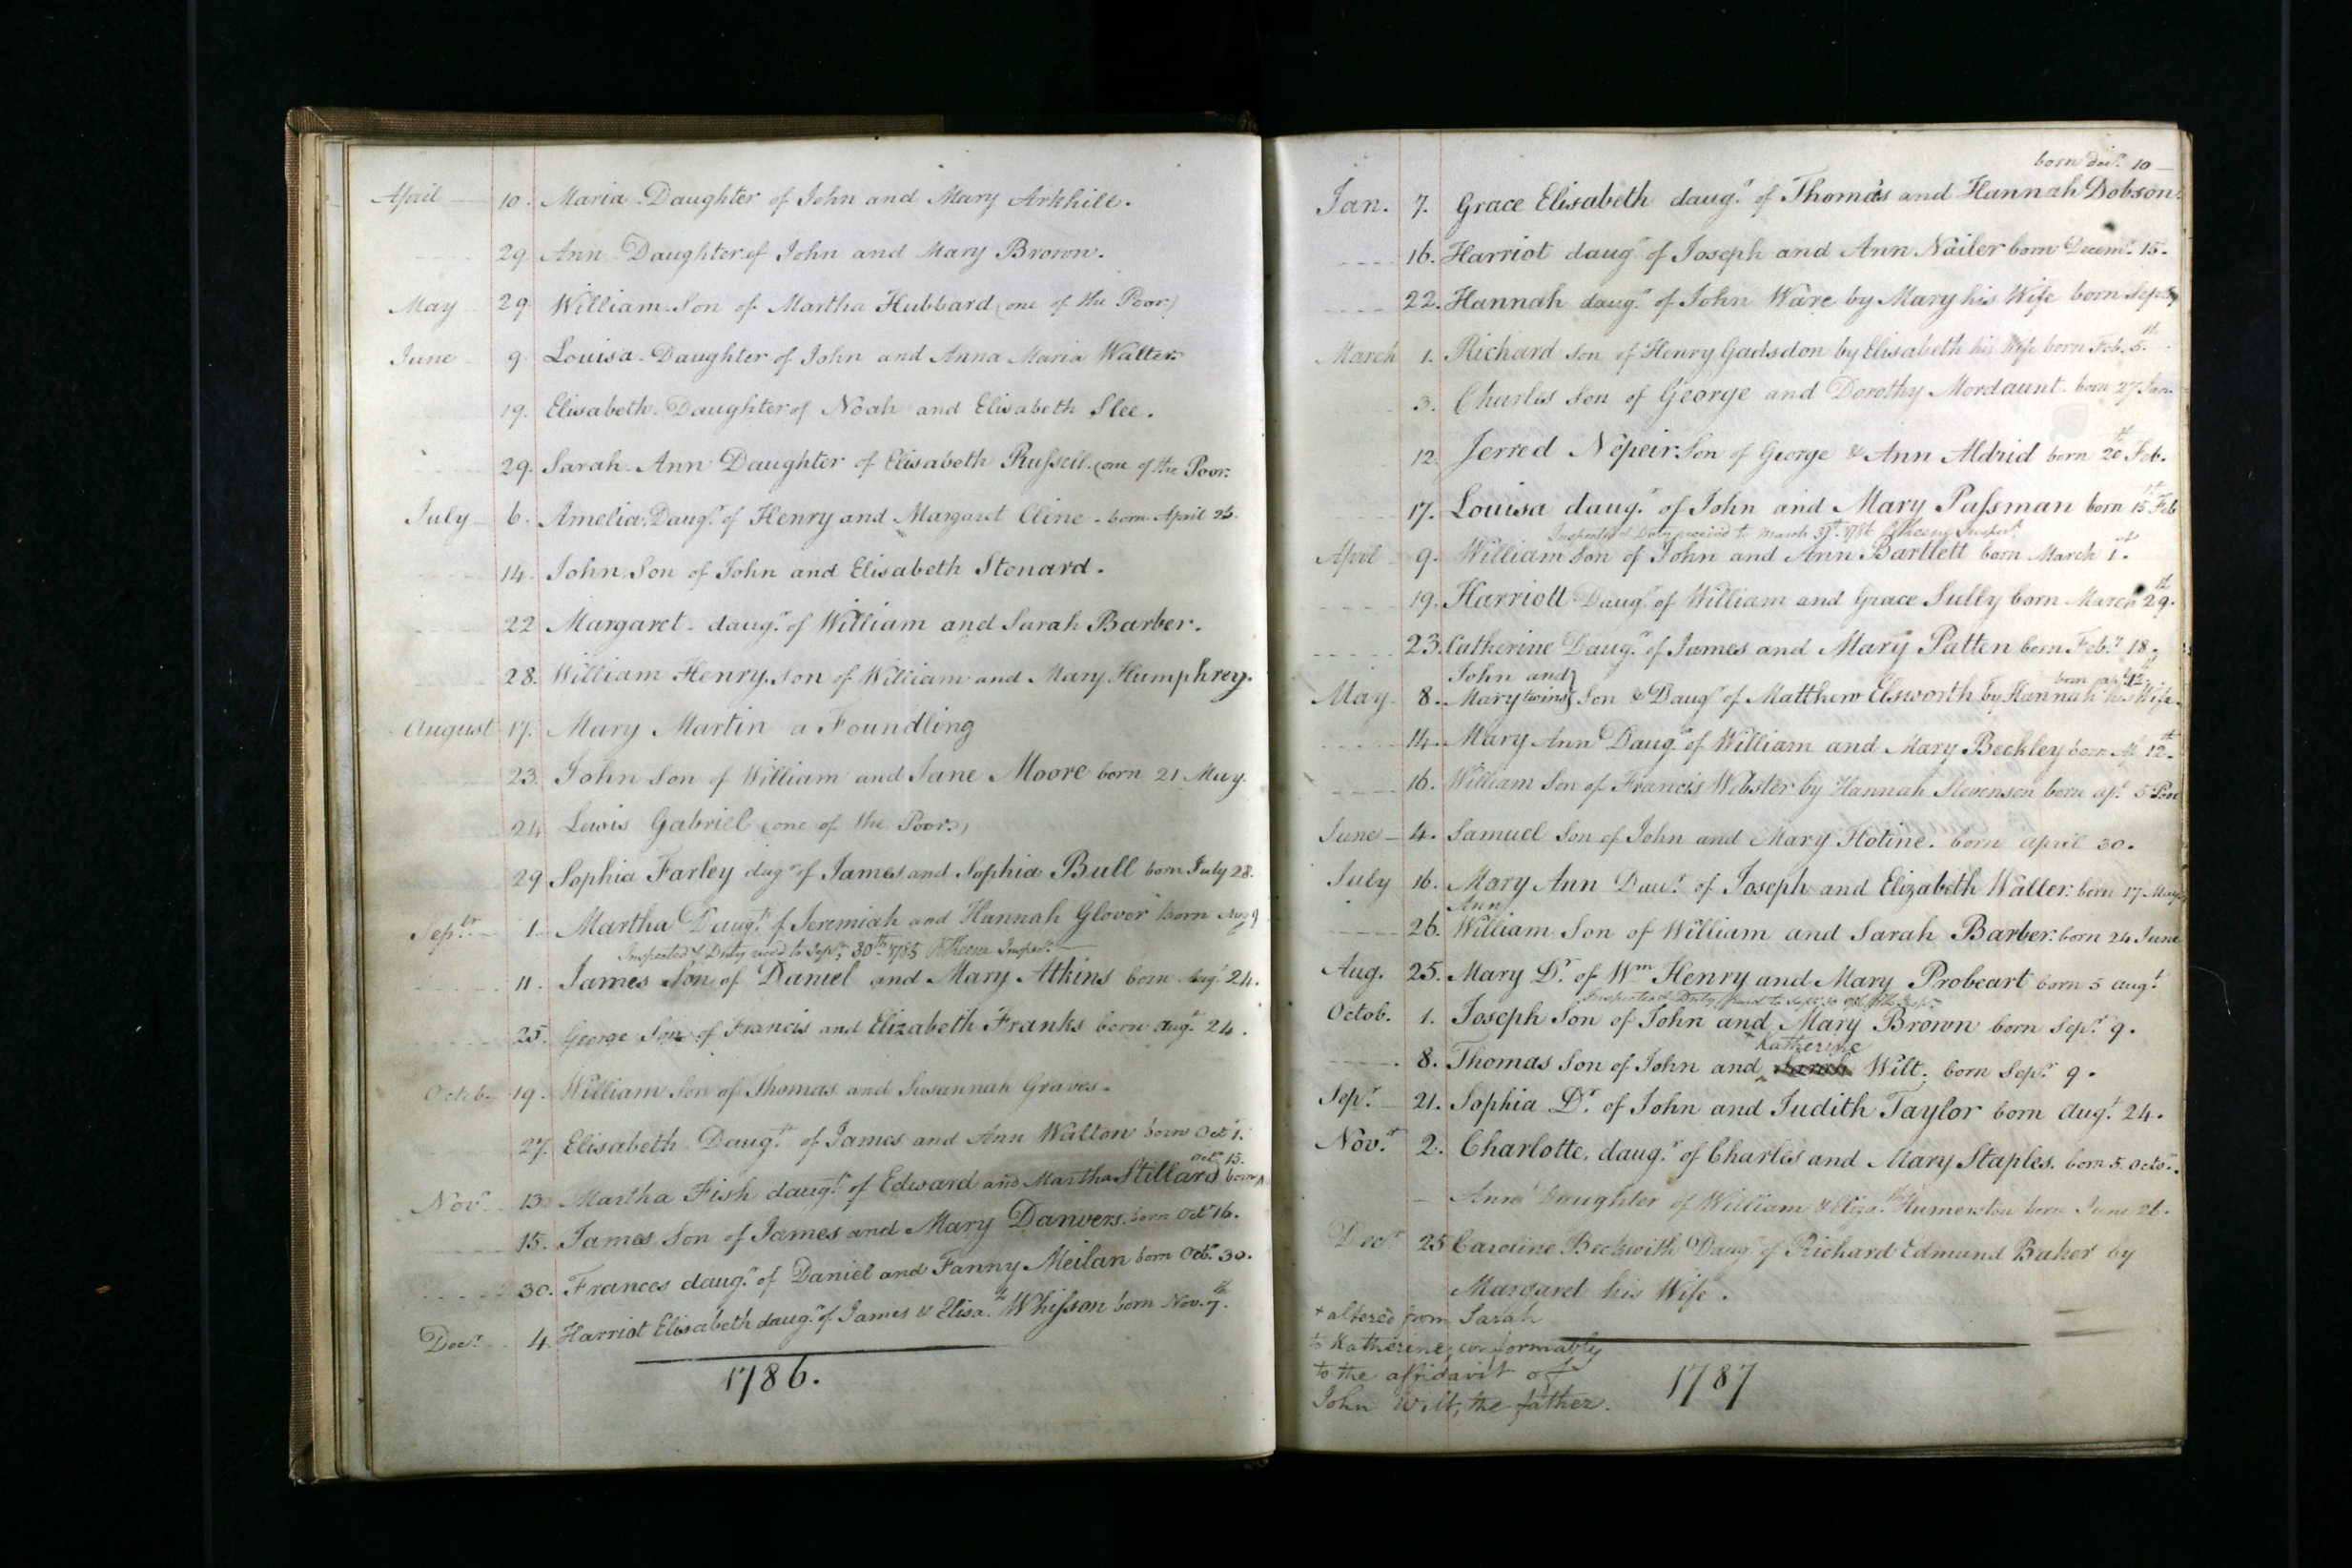 April 10. Maria Daughter of John and Mary Arkhill.
29 Ann Daughter of John and Mary Brown.
May 29 William Son of Martha Hubbard (one of the Poor)
June 9 Louisa Daughter of John and Anna Maria Walter
19. Elisabeth Daughter of Noah and Elisabeth Slee.
29. Sarah Ann Daughter of Elisabeth Rufsell (one of the Poor.
July 6. Amelia Daugr. of Henry and Margaret Cline - born April 26.
14. John Son of John and Elisabeth Stonard.
22 Margaret daugr. of William and Sarah Barber.
28. William Henry Son of William and Mary Humphrey.
August 17. Mary Martin a Foundling
23. John Son of William and Jane Moore born 21 May.
24 Lewis Gabriel (one of the Poor)
29 Sophia Farley dagr of James and Sophia Bull born July 28.
Sepbr 1. Martha Daugr. of Jeremiah and Hannah Glover born Aug 9
Inspected & Duty recd to Sepr. 30th 1785
11. James Son of Daniel and Mary Atkins born Augt 24.
25. George Son of Francis and Elizabeth Franks born augt. 24.
Octob. 19. William Son of Thomas and Susannah Graves.
27. Elisabeth Daugr. of James and Ann Walton born Oct 1.
octr 15.
Novr 13. Martha Fish daugr. of Edward and Martha Stillard born
15. James Son of James and Mary Danvers born Octr 16.
30. Frances daugr. of Daniel and Fanny Meilan born Octr. 30.
Decr. 4. Harriot Elisabeth daugr. of James & Elisath Whifson born Nov. 7th.
1786.
born decr. 10
Jan. 7. Grace Elisabeth daugr. of Thomas and Hannah Dobson.
16. Harriot daugr of Joseph and Ann Nailer born Decemr. 15.
22. Hannah daugr. of John Ware by Mary his Wife born
March 1. Richard Son of Henry Gadsdon by Elisabeth his Wife born Feb. 5th.
3. Charles Son of George and Dorothy Mordaunt. born 27 Jan.
12. Jerred Nepeir Son of George & Ann Aldrid born 20th Feb.
17. Louisa daugr. of John and Mary Pafsman born 15th Feb
Inspected & Duty received to March 31st. 1786
April 9. William Son of John and Ann Bartlett born March 1st.
19. Harriott Daugr. of William and Grace Sully born March 29th.
23. Catherine Daugr. of James and Mary Patten born Febr. 18.
John and
born apl 12th
May 8. Mary twins Son & Daugr of Matthew Elsworth by Hannah his Wife.
14. Mary Ann Daugr. of William and Mary Beckley born Ap 12th.
16. William Son of Francis Webster by Hannah Stevenson born apl 5 Poor
June 4. Samuel Son of John and Mary Hotine. born april 30.
July 16. Mary Ann Daur. of Joseph and Elizabeth Waller. born 17 May
Ann
26. William Son of William and Sarah Barber. born 24 June
Aug. 25. Mary Dr. of Wm Henry and Mary Probeart born 5 augt.
Octob. 1. Joseph Son of John and Mary Brown born Sepr. 9.
Katherine
8. Thomas Son of John and Sarah Wilt. born Sepr. 9.
Sepr. 21. Sophia Dr. of John and Judith Taylor born augt. 24.
Novr. 2. Charlotte, daugr. of Charles and Mary Staples. born 5. Octor.
Ann Daughter of William & Elizath. Humerston born June 26.
Decr 25 Caroline Beckwith Daugr of Richard Edmund Baker by
Margaret his Wife.
+ altered from Sarah
to Katherine, conformably
to the affidavit of
John Wilt, the father.
1787